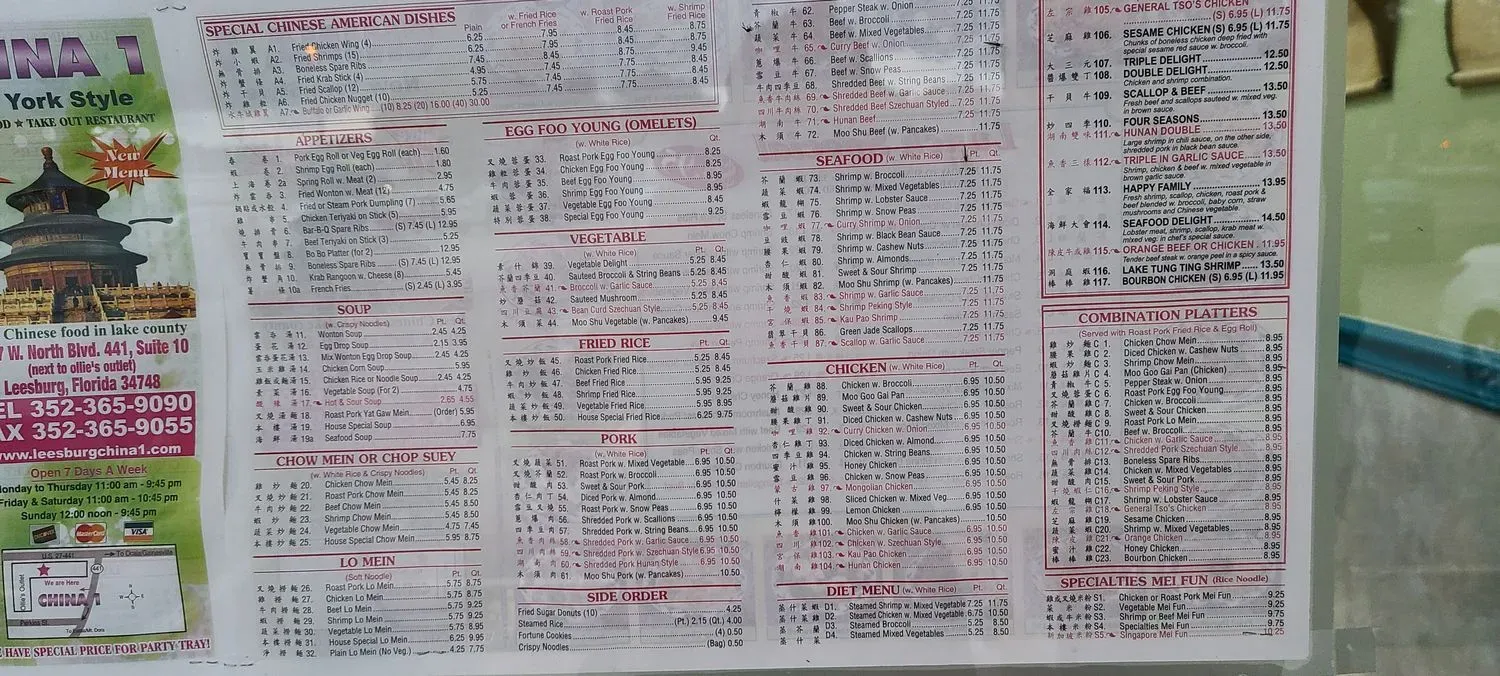 INA 1
York Style
OD ★ TAKE OUT RESTAURANT
New
Menu
Chinese food in lake county
7 W. North Blvd. 441, Suite 10
(next to ollie's outlet)
Leesburg, Florida 34748
EL 352-365-9090
AX 352-365-9055
www.leesburgchina1.com
Open 7 Days A Week
onday to Thursday 11:00 am - 9:45 pm
Friday & Saturday 11:00 am - 10:45 pm
Sunday 12:00 noon - 9:45 pm
MasterCard VISA
U.S. 27-441
Ollie's Outlet
We are Here
441
CHINA 1
Perkins St.
HAVE SPECIAL PRICE FOR PARTY TRAY!
SPECIAL CHINESE AMERICAN DISHES
Plain w. Fried Rice or French Fries w. Roast Pork Fried Rice w. Shrimp Fried Rice
炸雞翼 A1. Fried Chicken Wing (4) 6.25 7.95 8.45 8.75
炸小蝦 A2. Fried Shrimps (15) 6.25 7.95 8.45 8.75
無骨排 A3. Boneless Spare Ribs 7.45 8.75 9.75 9.45
炸蟹條 A4. Fried Krab Stick (4) 4.95 7.45 7.75 8.45
炸干貝 A5. Fried Scallop (12) 5.75 7.45 7.75 8.45
炸雞粒 A6. Fried Chicken Nugget (10) 6.25 7.45 7.75 8.45
A7. Buffalo or Garlic Wing (10) 8.25 (20) 16.00 (40) 30.00
APPETIZERS
春卷 1. Pork Egg Roll or Veg Egg Roll (each) 1.60
蝦卷 2. Shrimp Egg Roll (each) 1.80
上海卷 2a Spring Roll w. Meat (2) 2.95
炸雲吞 3. Fried Wonton w. Meat (12) 4.75
鍋貼或水餃 4. Fried or Steam Pork Dumpling (7) 5.65
雞串 5. Chicken Teriyaki on Stick (5) 5.95
燒排骨 6. Bar-B-Q Spare Ribs (S) 7.45 (L) 12.95
牛肉串 7. Beef Teriyaki on Stick (3) 5.25
寶寶盤 8. Bo Bo Platter (for 2) 12.95
無骨排 9. Boneless Spare Ribs (S) 7.45 (L) 12.95
蟹角 10. Krab Rangoon w. Cheese (8) 5.45
薯條 10a French Fries (S) 2.45 (L) 3.95
SOUP
(w. Crispy Noodles) Pt. Qt.
雲吞湯 11. Wonton Soup 2.45 4.25
蛋花湯 12. Egg Drop Soup 2.15 3.95
雲吞蛋花湯 13. Mix Wonton Egg Drop Soup 2.45 4.25
玉米雞湯 14. Chicken Corn Soup 5.95
雞飯或麵湯 15. Chicken Rice or Noodle Soup 2.45 4.25
素菜湯 16. Vegetable Soup (For 2) 4.75
酸辣湯 17. Hot & Sour Soup 2.65 4.55
叉燒湯麵 18. Roast Pork Yat Gaw Mein (Order) 5.95
本樓湯 19. House Special Soup 6.95
海鮮湯 19a Seafood Soup 7.75
CHOW MEIN OR CHOP SUEY
(w. White Rice & Crispy Noodles) Pt. Qt.
雞炒麵 20. Chicken Chow Mein 5.45 8.25
叉燒炒麵 21. Roast Pork Chow Mein 5.45 8.25
牛肉炒麵 22. Beef Chow Mein 5.45 8.50
蝦炒麵 23. Shrimp Chow Mein 5.45 8.50
蔬菜炒麵 24. Vegetable Chow Mein 4.75 7.45
本樓炒麵 25. House Special Chow Mein 5.95 8.75
LO MEIN
(Soft Noodle) Pt. Qt.
叉燒撈麵 26. Roast Pork Lo Mein 5.75 8.75
雞撈麵 27. Chicken Lo Mein 5.75 8.75
牛肉撈麵 28. Beef Lo Mein 5.75 9.25
蝦撈麵 29. Shrimp Lo Mein 5.75 9.25
蔬菜撈麵 30. Vegetable Lo Mein 5.75 8.95
本樓撈麵 31. House Special Lo Mein 6.25 9.95
淨撈麵 32. Plain Lo Mein (No Veg.) 4.25 7.75
EGG FOO YOUNG (OMELETS)
(w. White Rice) Qt.
叉燒蓉蛋 33. Roast Pork Egg Foo Young 8.25
雞粒蓉蛋 34. Chicken Egg Foo Young 8.25
牛肉蓉蛋 35. Beef Egg Foo Young 8.95
蝦蓉蛋 36. Shrimp Egg Foo Young 8.95
蔬菜蓉蛋 37. Vegetable Egg Foo Young 8.25
特別蓉蛋 38. Special Egg Foo Young 9.25
VEGETABLE
(w. White Rice) Pt. Qt.
素什錦 39. Vegetable Delight 5.25 8.45
芥蘭四季豆 40. Sauteed Broccoli & String Beans 5.25 8.45
魚香芥蘭 41. Broccoli w. Garlic Sauce 5.25 8.45
炒蘑菇 42. Sauteed Mushroom 5.25 8.45
四川豆腐 43. Bean Curd Szechuan Style 5.25 8.45
木須菜 44. Moo Shu Vegetable (w. Pancakes) 9.45
FRIED RICE
Pt. Qt.
叉燒炒飯 45. Roast Pork Fried Rice 5.25 8.45
雞炒飯 46. Chicken Fried Rice 5.25 8.45
牛肉炒飯 47. Beef Fried Rice 5.95 9.25
蝦炒飯 48. Shrimp Fried Rice 5.95 9.25
蔬菜炒飯 49. Vegetable Fried Rice 5.95 8.95
本樓炒飯 50. House Special Fried Rice 6.25 9.75
PORK
(w. White Rice) Pt. Qt.
叉燒蔬菜 51. Roast Pork w. Mixed Vegetable 6.95 10.50
叉燒芥蘭 52. Roast Pork w. Broccoli 6.95 10.50
甜酸肉 53. Sweet & Sour Pork 6.95 10.50
杏仁肉丁 54. Diced Pork w. Almond 6.95 10.50
雪豆叉燒 55. Roast Pork w. Snow Peas 6.95 10.50
蔥爆肉 56. Shredded Pork w. Scallions 6.95 10.50
四季豆肉 57. Shredded Pork w. String Beans 6.95 10.50
魚香肉絲 58. Shredded Pork w. Garlic Sauce 6.95 10.50
四川肉絲 59. Shredded Pork w. Szechuan Style 6.95 10.50
湖南肉 60. Shredded Pork Hunan Style 6.95 10.50
木須肉 61. Moo Shu Pork (w. Pancakes) 10.50
SIDE ORDER
Fried Sugar Donuts (10) 4.25
Steamed Rice (Pt.) 2.15 (Qt.) 4.00
Fortune Cookies (4) 0.50
Crispy Noodles (Bag) 0.50
青椒牛 62. Pepper Steak w. Onion 7.25 11.75
芥蘭牛 63. Beef w. Broccoli 7.25 11.75
蔬菜牛 64. Beef w. Mixed Vegetables 7.25 11.75
咖哩牛 65. Curry Beef w. Onion 7.25 11.75
蔥爆牛 66. Beef w. Scallions 7.25 11.75
雪豆牛 67. Beef w. Snow Peas 7.25 11.75
牛肉四季豆 68. Shredded Beef w. String Beans 7.25 11.75
魚香牛肉絲 69. Shredded Beef w. Garlic Sauce 7.25 11.75
四川牛肉絲 70. Shredded Beef Szechuan Styled 7.25 11.75
湖南牛 71. Hunan Beef 7.25 11.75
木須牛 72. Moo Shu Beef (w. Pancakes) 11.75
SEAFOOD (w. White Rice) Pt. Qt.
芥蘭蝦 73. Shrimp w. Broccoli 7.25 11.75
蔬菜蝦 74. Shrimp w. Mixed Vegetables 7.25 11.75
蝦龍糊 75. Shrimp w. Lobster Sauce 7.25 11.75
雪豆蝦 76. Shrimp w. Snow Peas 7.25 11.75
咖哩蝦 77. Curry Shrimp w. Onion 7.25 11.75
豆豉蝦 78. Shrimp w. Black Bean Sauce 7.25 11.75
腰果蝦 79. Shrimp w. Cashew Nuts 7.25 11.75
杏仁蝦 80. Shrimp w. Almonds 7.25 11.75
甜酸蝦 81. Sweet & Sour Shrimp 7.25 11.75
木須蝦 82. Moo Shu Shrimp (w. Pancakes) 11.75
魚香蝦 83. Shrimp w. Garlic Sauce 7.25 11.75
干燒蝦 84. Shrimp Peking Style 7.25 11.75
宮保蝦 85. Kau Pao Shrimp 7.25 11.75
翡翠干貝 86. Green Jade Scallops 7.25 11.75
魚香干貝 87. Scallop w. Garlic Sauce 7.25 11.75
CHICKEN (w. White Rice) Pt. Qt.
芥蘭雞 88. Chicken w. Broccoli 6.95 10.50
蘑菇雞片 89. Moo Goo Gai Pan 6.95 10.50
甜酸雞 90. Sweet & Sour Chicken 6.95 10.50
腰果雞丁 91. Diced Chicken w. Cashew Nuts 6.95 10.50
咖哩雞 92. Curry Chicken w. Onion 6.95 10.50
杏仁雞丁 93. Diced Chicken w. Almond 6.95 10.50
四季豆雞 94. Chicken w. String Beans 6.95 10.50
蜜汁雞 95. Honey Chicken 6.95 10.50
雪豆雞 96. Chicken w. Snow Peas 6.95 10.50
蒙古雞 97. Mongolian Chicken 6.95 10.50
什菜雞 98. Sliced Chicken w. Mixed Veg. 6.95 10.50
檸檬雞 99. Lemon Chicken 6.95 10.50
木須雞 100. Moo Shu Chicken (w. Pancakes) 10.50
魚香雞 101. Chicken w. Garlic Sauce 6.95 10.50
四川雞 102. Chicken w. Szechuan Style 6.95 10.50
宮保雞 103. Kau Pao Chicken 6.95 10.50
湖南雞 104. Hunan Chicken 6.95 10.50
DIET MENU (w. White Rice) Pt. Qt.
蒸什菜蝦 D1. Steamed Shrimp w. Mixed Vegetable 7.25 11.75
蒸什菜雞 D2. Steamed Chicken w. Mixed Vegetable 6.75 10.50
蒸芥蘭 D3. Steamed Broccoli 5.25 8.50
蒸什菜 D4. Steamed Mixed Vegetables 5.25 8.50
左宗雞 105. GENERAL TSO'S CHICKEN
(S) 6.95 (L) 11.75
芝麻雞 106. SESAME CHICKEN (S) 6.95 (L) 11.75
Chunks of boneless chicken deep fried with
special sesame red sauce w. broccoli.
大三元 107. TRIPLE DELIGHT 12.50
醬爆雙丁 108. DOUBLE DELIGHT 12.50
Chicken and shrimp combination.
干貝牛 109. SCALLOP & BEEF 13.50
Fresh beef and scallops sauteed w. mixed veg.
in brown sauce.
炒四季 110. FOUR SEASONS 13.50
湖南雙味 111. HUNAN DOUBLE 13.50
Large shrimp in chili sauce, on the other side,
shredded pork in black bean sauce.
魚香三樣 112. TRIPLE IN GARLIC SAUCE 13.50
Shrimp, chicken & beef w. mixed vegetable in
brown garlic sauce.
全家福 113. HAPPY FAMILY 13.95
Fresh shrimp, scallop, chicken, roast pork &
beef blended w. broccoli, baby corn, straw
mushrooms and Chinese vegetable.
海鮮大會 114. SEAFOOD DELIGHT 14.50
Lobster meat, shrimp, scallop, krab meat w.
mixed veg. in chef's special sauce.
陳皮牛或雞 115. ORANGE BEEF OR CHICKEN 11.95
Tender beef steak w. orange peel in a spicy sauce.
洞庭蝦 116. LAKE TUNG TING SHRIMP 13.50
棒棒雞 117. BOURBON CHICKEN (S) 6.95 (L) 11.95
COMBINATION PLATTERS
(Served with Roast Pork Fried Rice & Egg Roll)
雞炒麵 C 1. Chicken Chow Mein 8.95
腰果雞 C 2. Diced Chicken w. Cashew Nuts 8.95
蝦炒麵 C 3. Shrimp Chow Mein 8.95
蘑菇雞片 C 4. Moo Goo Gai Pan (Chicken) 8.95
青椒牛 C 5. Pepper Steak w. Onion 8.95
叉燒蓉蛋 C 6. Roast Pork Egg Foo Young 8.95
芥蘭雞 C 7. Chicken w. Broccoli 8.95
甜酸雞 C 8. Sweet & Sour Chicken 8.95
叉燒撈麵 C 9. Roast Pork Lo Mein 8.95
芥蘭牛 C10. Beef w. Broccoli 8.95
魚香雞 C11. Chicken w. Garlic Sauce 8.95
四川肉絲 C12. Shredded Pork Szechuan Style 8.95
無骨排 C13. Boneless Spare Ribs 8.95
蔬菜雞 C14. Chicken w. Mixed Vegetables 8.95
甜酸肉 C15. Sweet & Sour Pork 8.95
干燒蝦仁 C16. Shrimp Peking Style 8.95
蝦龍糊 C17. Shrimp w. Lobster Sauce 8.95
左宗雞 C18. General Tso's Chicken 8.95
芝麻雞 C19. Sesame Chicken 8.95
蔬菜蝦 C20. Shrimp w. Mixed Vegetables 8.95
陳皮雞 C21. Orange Chicken 8.95
蜜汁雞 C22. Honey Chicken 8.95
棒棒雞 C23. Bourbon Chicken 8.95
SPECIALTIES MEI FUN (Rice Noodle)
雞或叉燒米粉 S1. Chicken or Roast Pork Mei Fun 9.25
菜米粉 S2. Vegetable Mei Fun 9.25
蝦或牛米粉 S3. Shrimp or Beef Mei Fun 9.75
本樓米粉 S4. Specialties Mei Fun 9.75
新加坡米粉 S5. Singapore Mei Fun 10.25